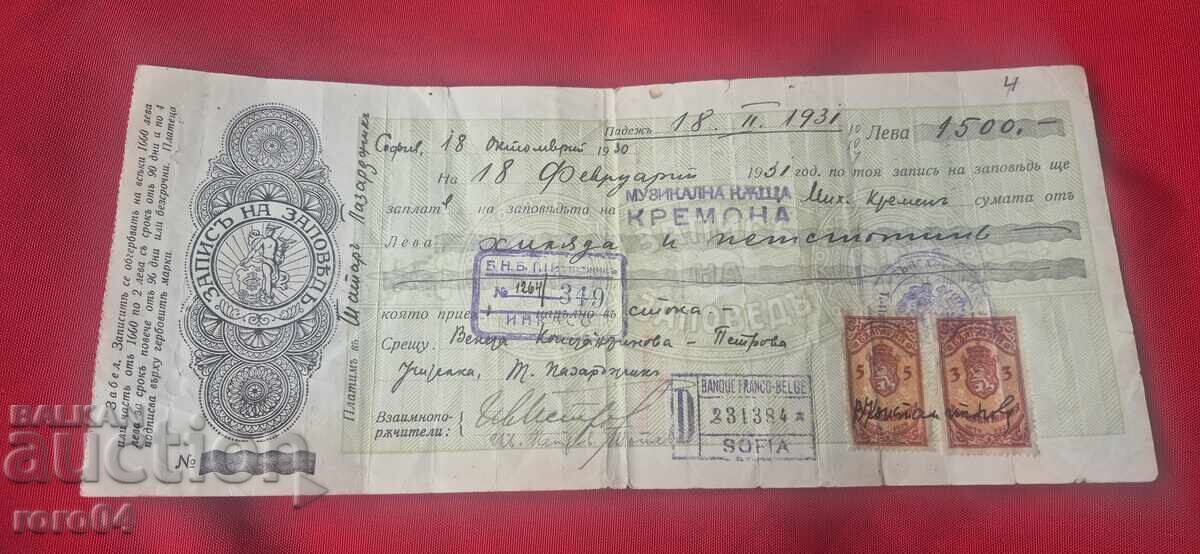 Забел. Записитѣ се обгербвать на всѣки 1660 лева
или часть отъ 1660 по 2 лева съ срокъ отъ 90 дни и по 4
лева за срокъ повече отъ 90 дни или безсрочни. Платецо
подписва върху гербовитѣ марки.
ЗАПИСЪ НА ЗАПОВѢДЪ
№
Платимъ въ Татаръ Пазарджикъ
4
Падежъ 18. II. 1931 Лева 1500.-
София, 18 октомврий 1930
На 18 Февруарий 1931 год. по тоя записъ на заповѣдь ще
заплат на заповѣдьта на МУЗИКАЛНА КѪЩА КРЕМОНА Мих. Кременъ сумата отъ
Лева хиляда и петстотинъ
Б.Н.Б.
№ 1264 349
ИНКАСО
която прие напълно въ стока.-
Срещу: Венета Константинова - Петрова
Учителка, Т. Пазарджикъ
Взаимнопо-
рѫчители:
BANQUE FRANCO-BELGE
D 231384
SOFIA
5 5
3 3
БАЛКАН
auction
roro04